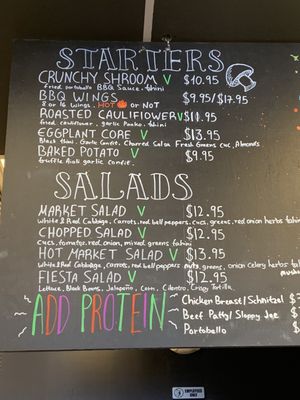 STARTERS
CRUNCHY SHROOM V $10.95
fried portobello BBQ Sauce, tahini
BBQ WINGS $9.95/$17.95
8 or 16 wings, HOT or NOT
ROASTED CAULIFLOWER V $11.95
fried cauliflower, garlic Panko, tahini
EGGPLANT CORE V $13.95
Black tahini, Garlic Confit, Charred Salsa Fresh Greens Cuc, Almonds
BAKED POTATO V $9.95
truffle Aioli garlic confit
SALADS
MARKET SALAD V $12.95
White & Red Cabbage, Carrots, red bell peppers, cucs, greens, red onion herbs
CHOPPED SALAD V $12.95
Cucs, tomato, red onion, mixed greens tahini
HOT MARKET SALAD V $13.95
White & Red Cabbage, Carrots, red bell peppers greens, onion Celery herbs
FIESTA SALAD V $12.95
Lettuce, Black Beans, Jalapeño, Corn, Cilantro, Crispy Tortilla
ADD PROTEIN
Chicken Breast/Schnitzel
Beef Patty/Sloppy Joe
Portobello
EMPLOYEES
ONLY